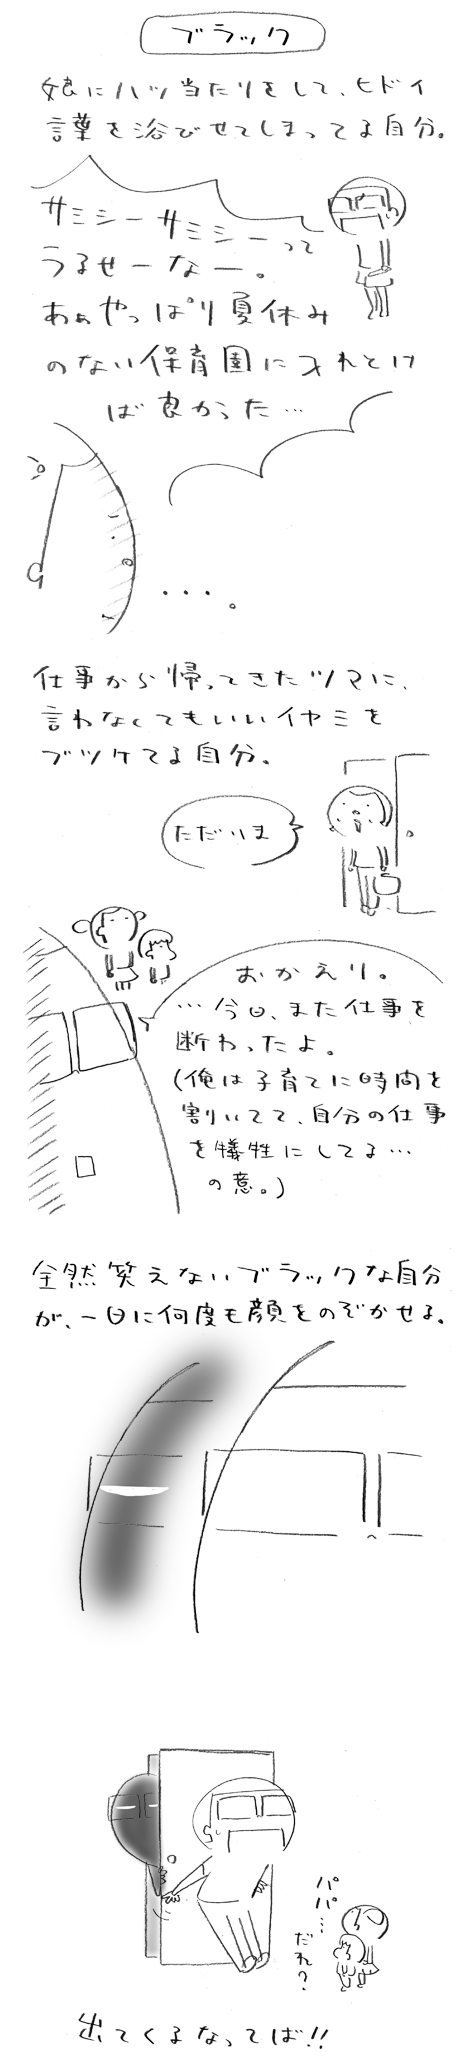 ブラック
娘にハツ当たりをして、ヒドイ
言葉を浴びせてしまってる自分。
サミシーサミシーって
うるせーなー。
あぁやっぱり夏休み
のない保育園に入れとけ
ば良かった…
・・・。
仕事から帰ってきたツマに、
言わなくてもいいイヤミを
ブツケてる自分。
ただいま
おかえり。
…今日、また仕事を
断わったよ。
(俺は子育てに時間を
割いてて、自分の仕事
を犠牲にしてる…
の意。)
全然笑えないブラックな自分
が、一日に何度も顔をのぞかせる。
パパ…
だれ?
出てくるなってば!!